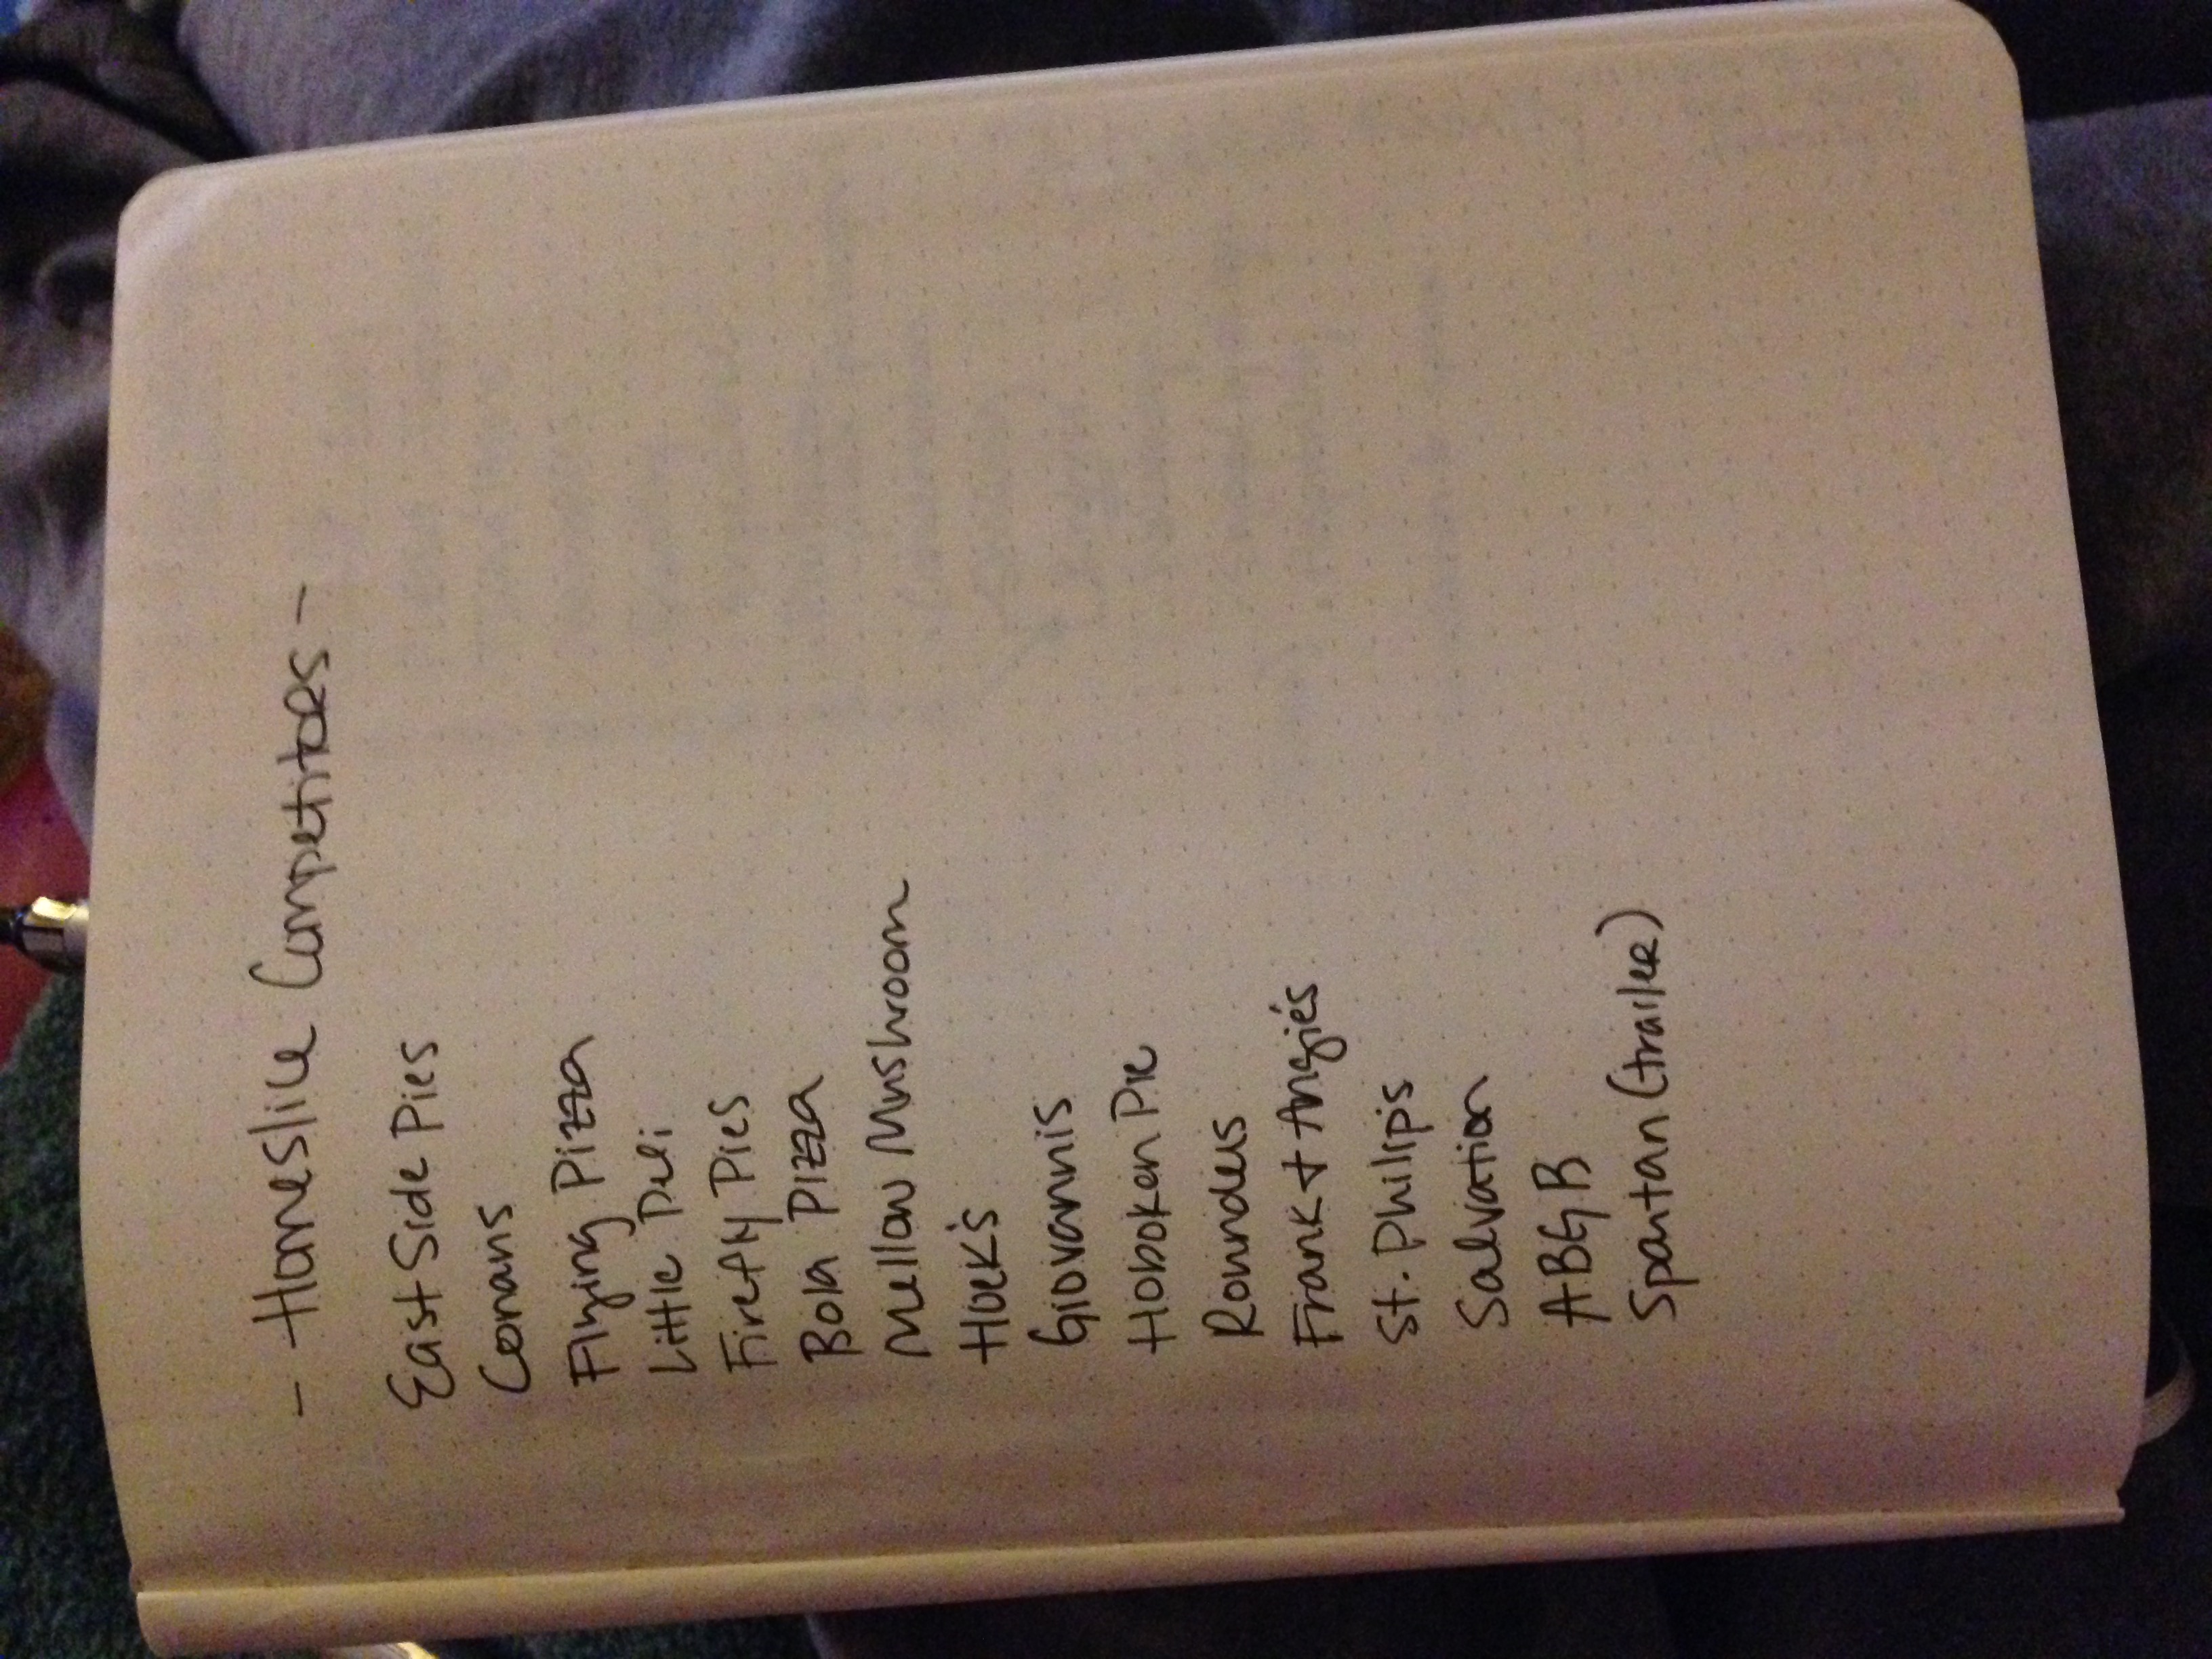 - Homeslice Competitors -
East Side Pies
Conans
Flying Pizza
Little Deli
Firefly Pies
Bola Pizza
Mellow Mushroom
Hoek's
Giovannis
Hoboken Pie
Rounders
Frank + Angie's
St. Philip's
Salvation
ABGB
Spartan (trailer)